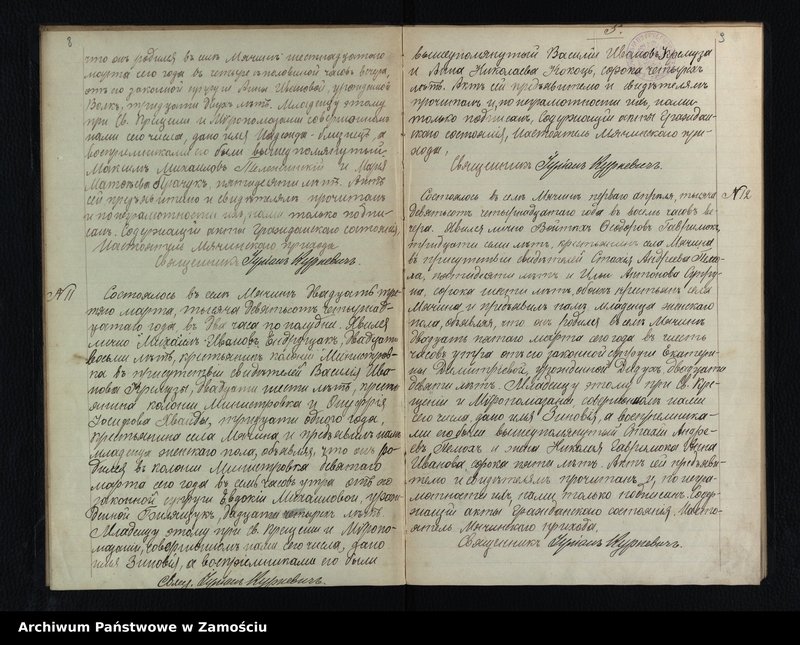 8
что онъ родился въ селѣ Мячинѣ шестнадцатаго
марта сего года въ четыре съ половиной часовъ вечера,
отъ его законной супруги Анны Ивановой, урожденной
Волкъ, тридцати двухъ лѣтъ. Младенцу этому
при Св. Крещеніи и Мѵропомазаніи совершенномъ
нами сего числа, дано имя а
воспріемниками его были вышеупомянутый
Максимъ Михаиловъ и Марія
пятидесяти лѣтъ. Актъ
сей предъявителю и свидѣтелямъ прочитанъ
и по неграмотности ихъ, нами только подпи-
санъ. Содержащій акты Гражданскаго состоянія,
Настоятель Мячинскаго прихода
Священникъ Іуліанъ Куркевичъ.
№ 11
Состоялось въ селѣ Мячинѣ двадцать тре-
тяго марта, тысяча девятьсотъ четырнад-
цатаго года, въ два часа по полудни. Явился
лично Михаилъ Ивановъ Андрущакъ, двадцати
восьми лѣтъ, крестьянинъ колоніи Министров-
ка въ присутствіи свидѣтелей Василія Ива-
нова Кремузы, двадцати шести лѣтъ, кресть-
янина колоніи Министровка и Онуфрія
Іосифова тридцати одного года,
крестьянина села Мячина и предъявилъ намъ
младенца женскаго пола, объявляя, что онъ ро-
дился въ колоніи Министровка девятаго
марта сего года въ семь часовъ утра отъ его
законной супруги Евдокіи Михаиловой, урож-
денной двадцати четырехъ лѣтъ.
Младенцу этому при Св. Крещеніи и Мѵропо-
мазаніи, совершенномъ нами сего числа, дано
имя Зиновія, а воспріемниками его были
Свящ. Іуліанъ Куркевичъ.
5.
9
вышеупомянутый Василій Ивановъ Кремуза
и Анна Николаева Кокоцъ, сорока четырехъ
лѣтъ. Актъ сей предъявителю и свидѣтелямъ
прочитанъ и, по неграмотности ихъ, нами
только подписанъ. Содержащій акты Граждан-
скаго состоянія, Настоятель Мячинскаго при-
хода,
Священникъ Іуліанъ Куркевичъ.
№ 12
Состоялось въ селѣ Мячинѣ перваго апрѣля, тысяча
девятьсотъ четырнадцатаго года въ восемь часовъ ве-
чера. Явился лично Войтехъ Ѳеодоровъ Гаврилюкъ,
тридцати семи лѣтъ, крестьянинъ села Мячина
въ присутствіи свидѣтелей Стахія Андреева
пятидесяти лѣтъ и Ильи Антонова
сорока шести лѣтъ, обоихъ крестьянъ села
Мячина и предъявилъ намъ младенца женскаго
пола, объявляя, что онъ родился въ селѣ Мячинѣ
двадцать пятаго марта сего года въ шесть
часовъ утра отъ его законной супруги Екатери-
ны Димитріевой, урожденной двадцати
девяти лѣтъ. Младенцу этому при Св. Кре-
щеніи и Мѵропомазаніи совершенномъ нами
сего числа, дано имя Зиновія, а воспріемника-
ми его были вышеупомянутый Стахій Андре-
евъ и жена Николая Гаврилюка Анна
Иванова сорока пяти лѣтъ. Актъ сей предъяви-
телю и свидѣтелямъ прочитанъ и, по негра-
мотности ихъ, нами только подписанъ. Содер-
жащій акты Гражданскаго состоянія, Насто-
ятель Мячинскаго прихода,
Священникъ Іуліанъ Куркевичъ.
Archiwum Państwowe w Zamościu